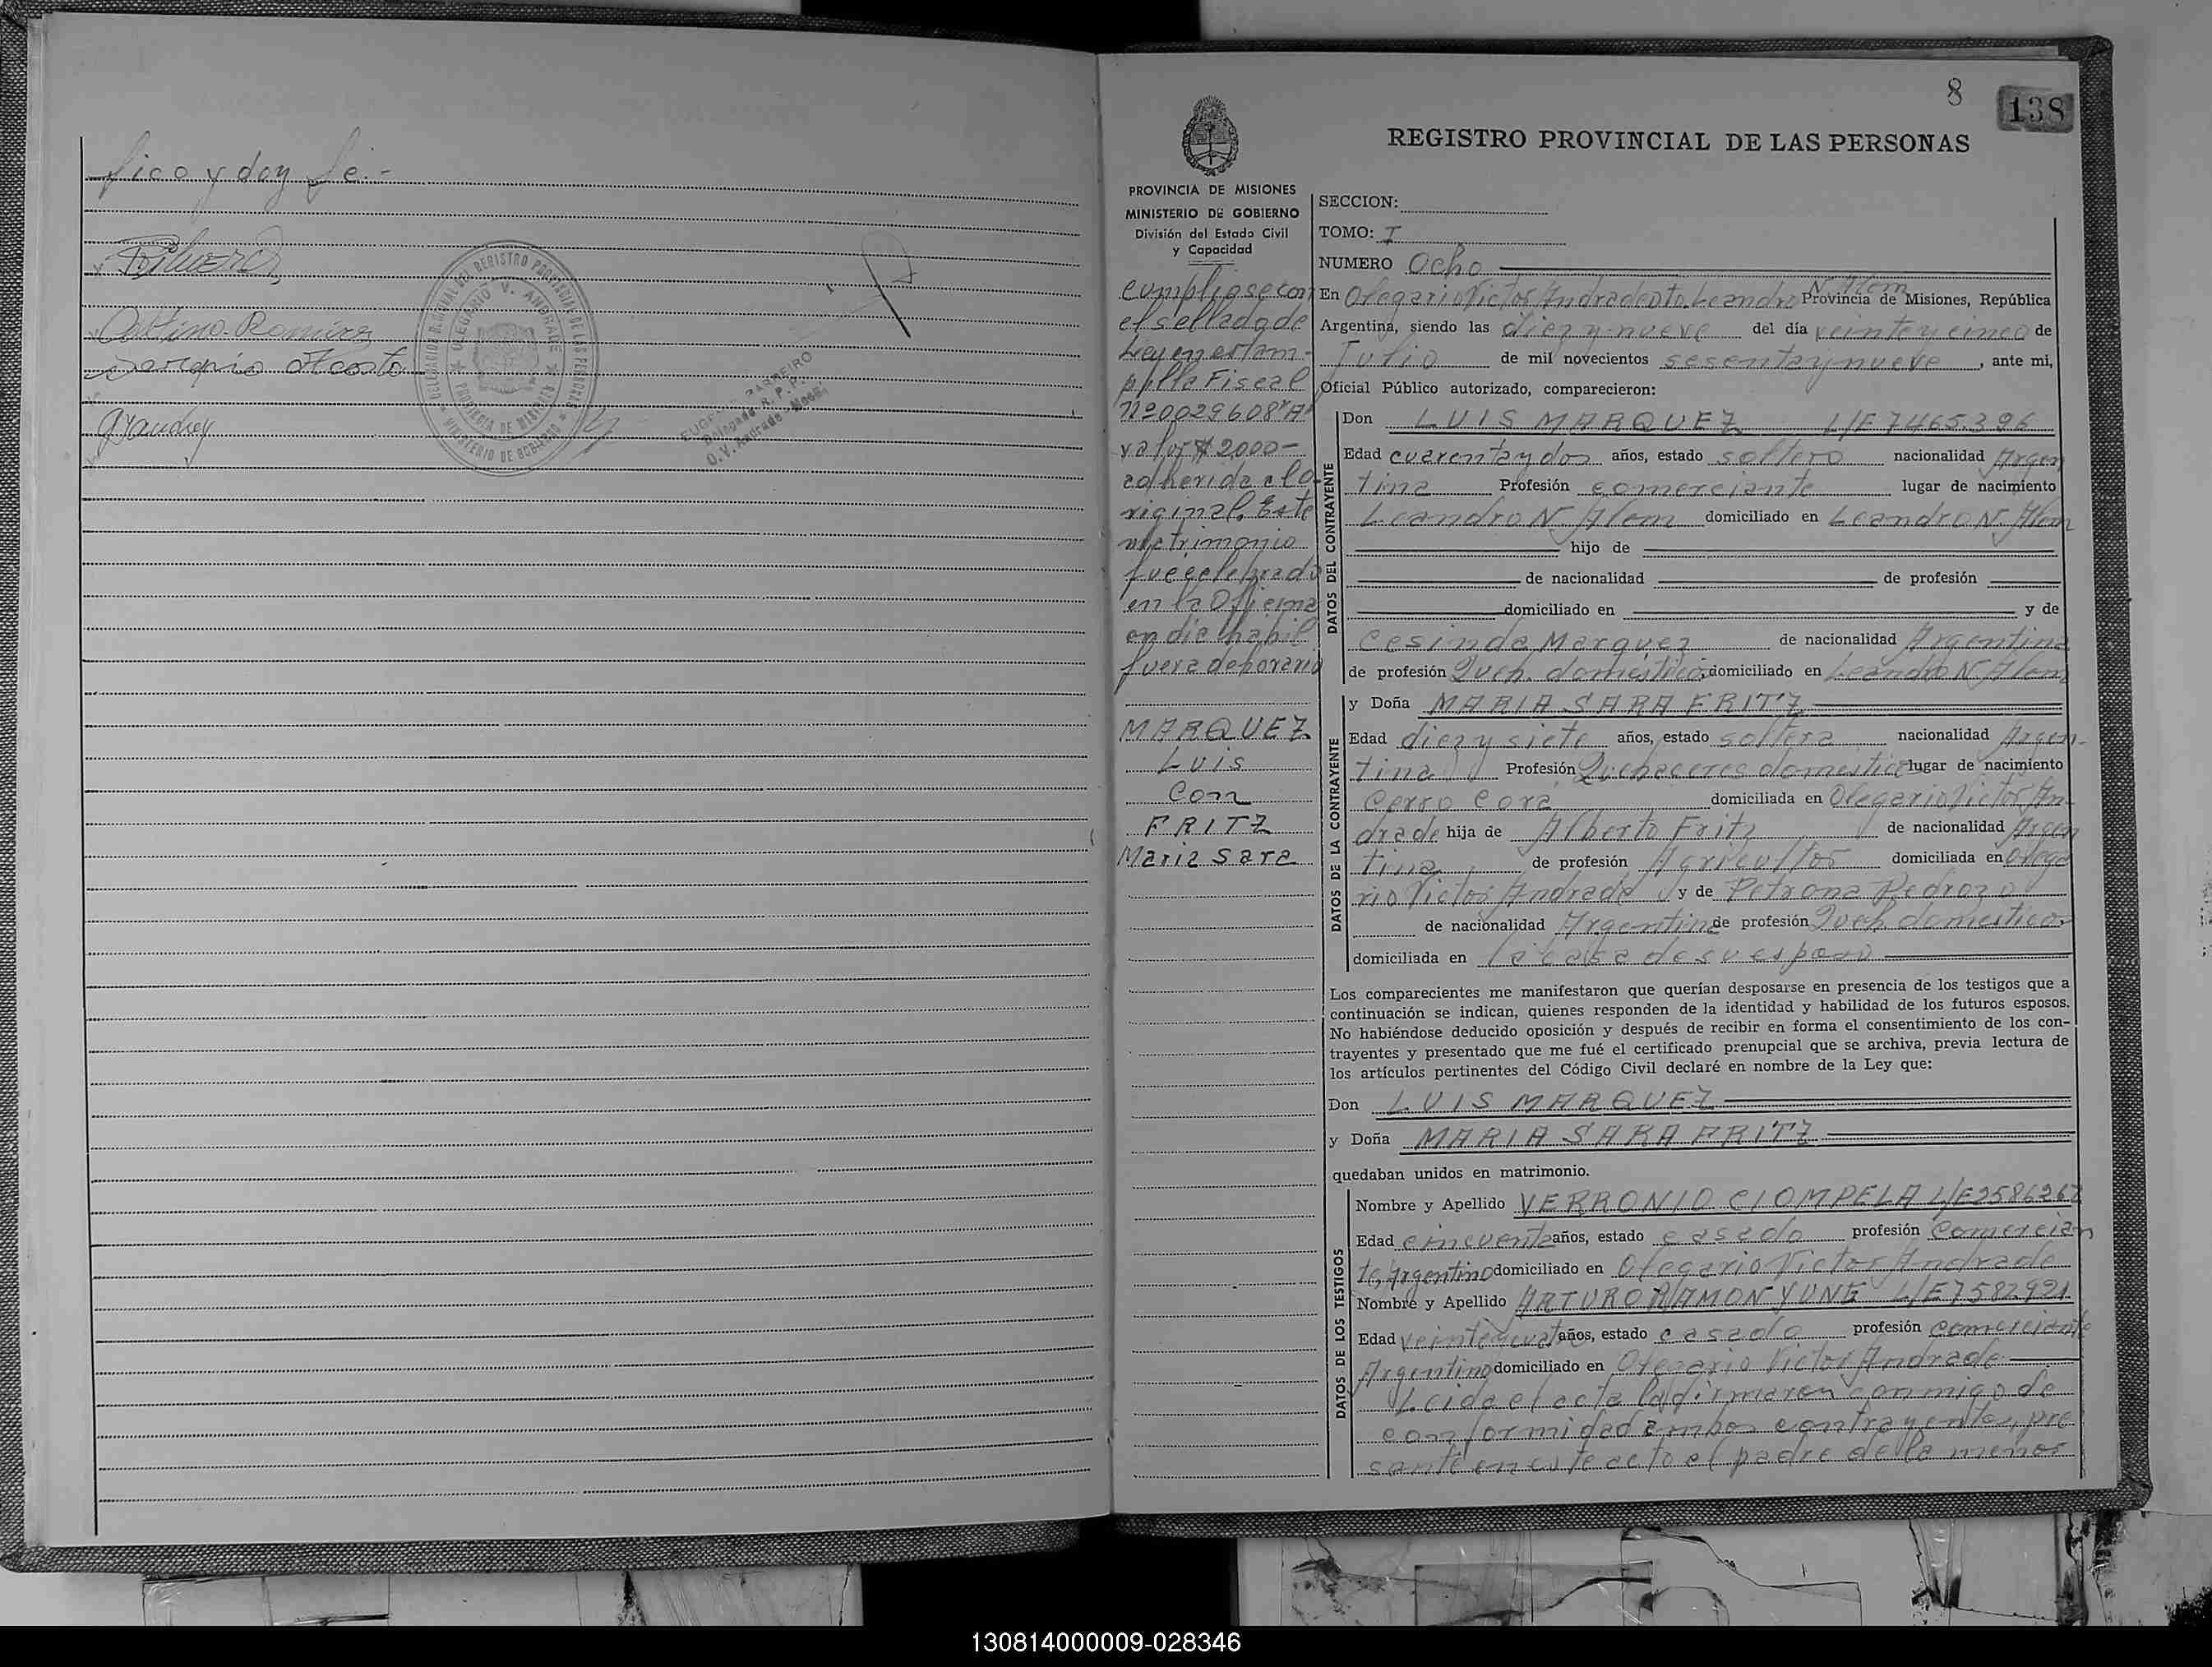 fico y doy fé.-
Aldino Romirez
Serapio Acosta
DELEGACION REGIONAL DEL REGISTRO PROVINCIAL DE LAS PERSONAS
OLEGARIO V. ANDRADE
PROVINCIA DE MISIONES
MINISTERIO DE GOBIERNO
BARREIRO
Delegado R. P. P.
O. V. Andrade - Mnes.
8
138
REGISTRO PROVINCIAL DE LAS PERSONAS
PROVINCIA DE MISIONES
MINISTERIO DE GOBIERNO
División del Estado Civil
y Capacidad
cumpliose con
el sellado de
Ley en estam-
pilla Fiscal
nº 0029608"A"
valor $ 2000-
adherida al o-
riginal. Este
matrimonio
fue celebrado
en la Oficina
en dia habil
fuera de horario
MARQUEZ
Luis
Con
FRITZ
Maria Sara
SECCION:
TOMO: I
NUMERO Ocho
En Olegario Victor Andrade Dto. Leandro N. Alem Provincia de Misiones, República
Argentina, siendo las diez y nueve del día veinte y cinco de
Julio de mil novecientos sesenta y nueve, ante mi,
Oficial Público autorizado, comparecieron:
DATOS DEL CONTRAYENTE
Don LUIS MARQUEZ L/E 7465.396
Edad cuarenta y dos años, estado soltero nacionalidad Argen
tina Profesión comerciante lugar de nacimiento
Leandro N. Alem domiciliado en Leandro N. Alem
hijo de
de nacionalidad de profesión
domiciliado en y de
Cesinda Marquez de nacionalidad Argentina
de profesión Queh. domésticos domiciliado en Leandro N. Alem
DATOS DE LA CONTRAYENTE
y Doña MARIA SARA FRITZ
Edad diez y siete años, estado soltera nacionalidad Argen-
tina Profesión Quehaceres domestico lugar de nacimiento
Cerro Cora domiciliada en Olegario Victor An-
drade hija de Alberto Fritz de nacionalidad Argen
tina de profesión Agricultor domiciliada en Olega
rio Victor Andrade y de Petrona Pedrozo
de nacionalidad Argentina de profesión Queh. domesticos
domiciliada en la casa de su esposo
Los comparecientes me manifestaron que querían desposarse en presencia de los testigos que a
continuación se indican, quienes responden de la identidad y habilidad de los futuros esposos.
No habiéndose deducido oposición y después de recibir en forma el consentimiento de los con-
trayentes y presentado que me fué el certificado prenupcial que se archiva, previa lectura de
los artículos pertinentes del Código Civil declaré en nombre de la Ley que:
Don LUIS MARQUEZ
y Doña MARIA SARA FRITZ
quedaban unidos en matrimonio.
DATOS DE LOS TESTIGOS
Nombre y Apellido VERRONIO CIOMPELA L/E 2586267
Edad cincuenta años, estado casado profesión Comercian
te, Argentino domiciliado en Olegario Victor Andrade
Nombre y Apellido ARTURO RAMON YUNG L/E 7582921
Edad veinte y cuat años, estado casado profesión comerciante
Argentino domiciliado en Olegario Victor Andrade
Leida el acta la firmaron conmigo de
conformidad ambos contrayentes, pre
sente en este acto el padre de la menor
130814000009-028346